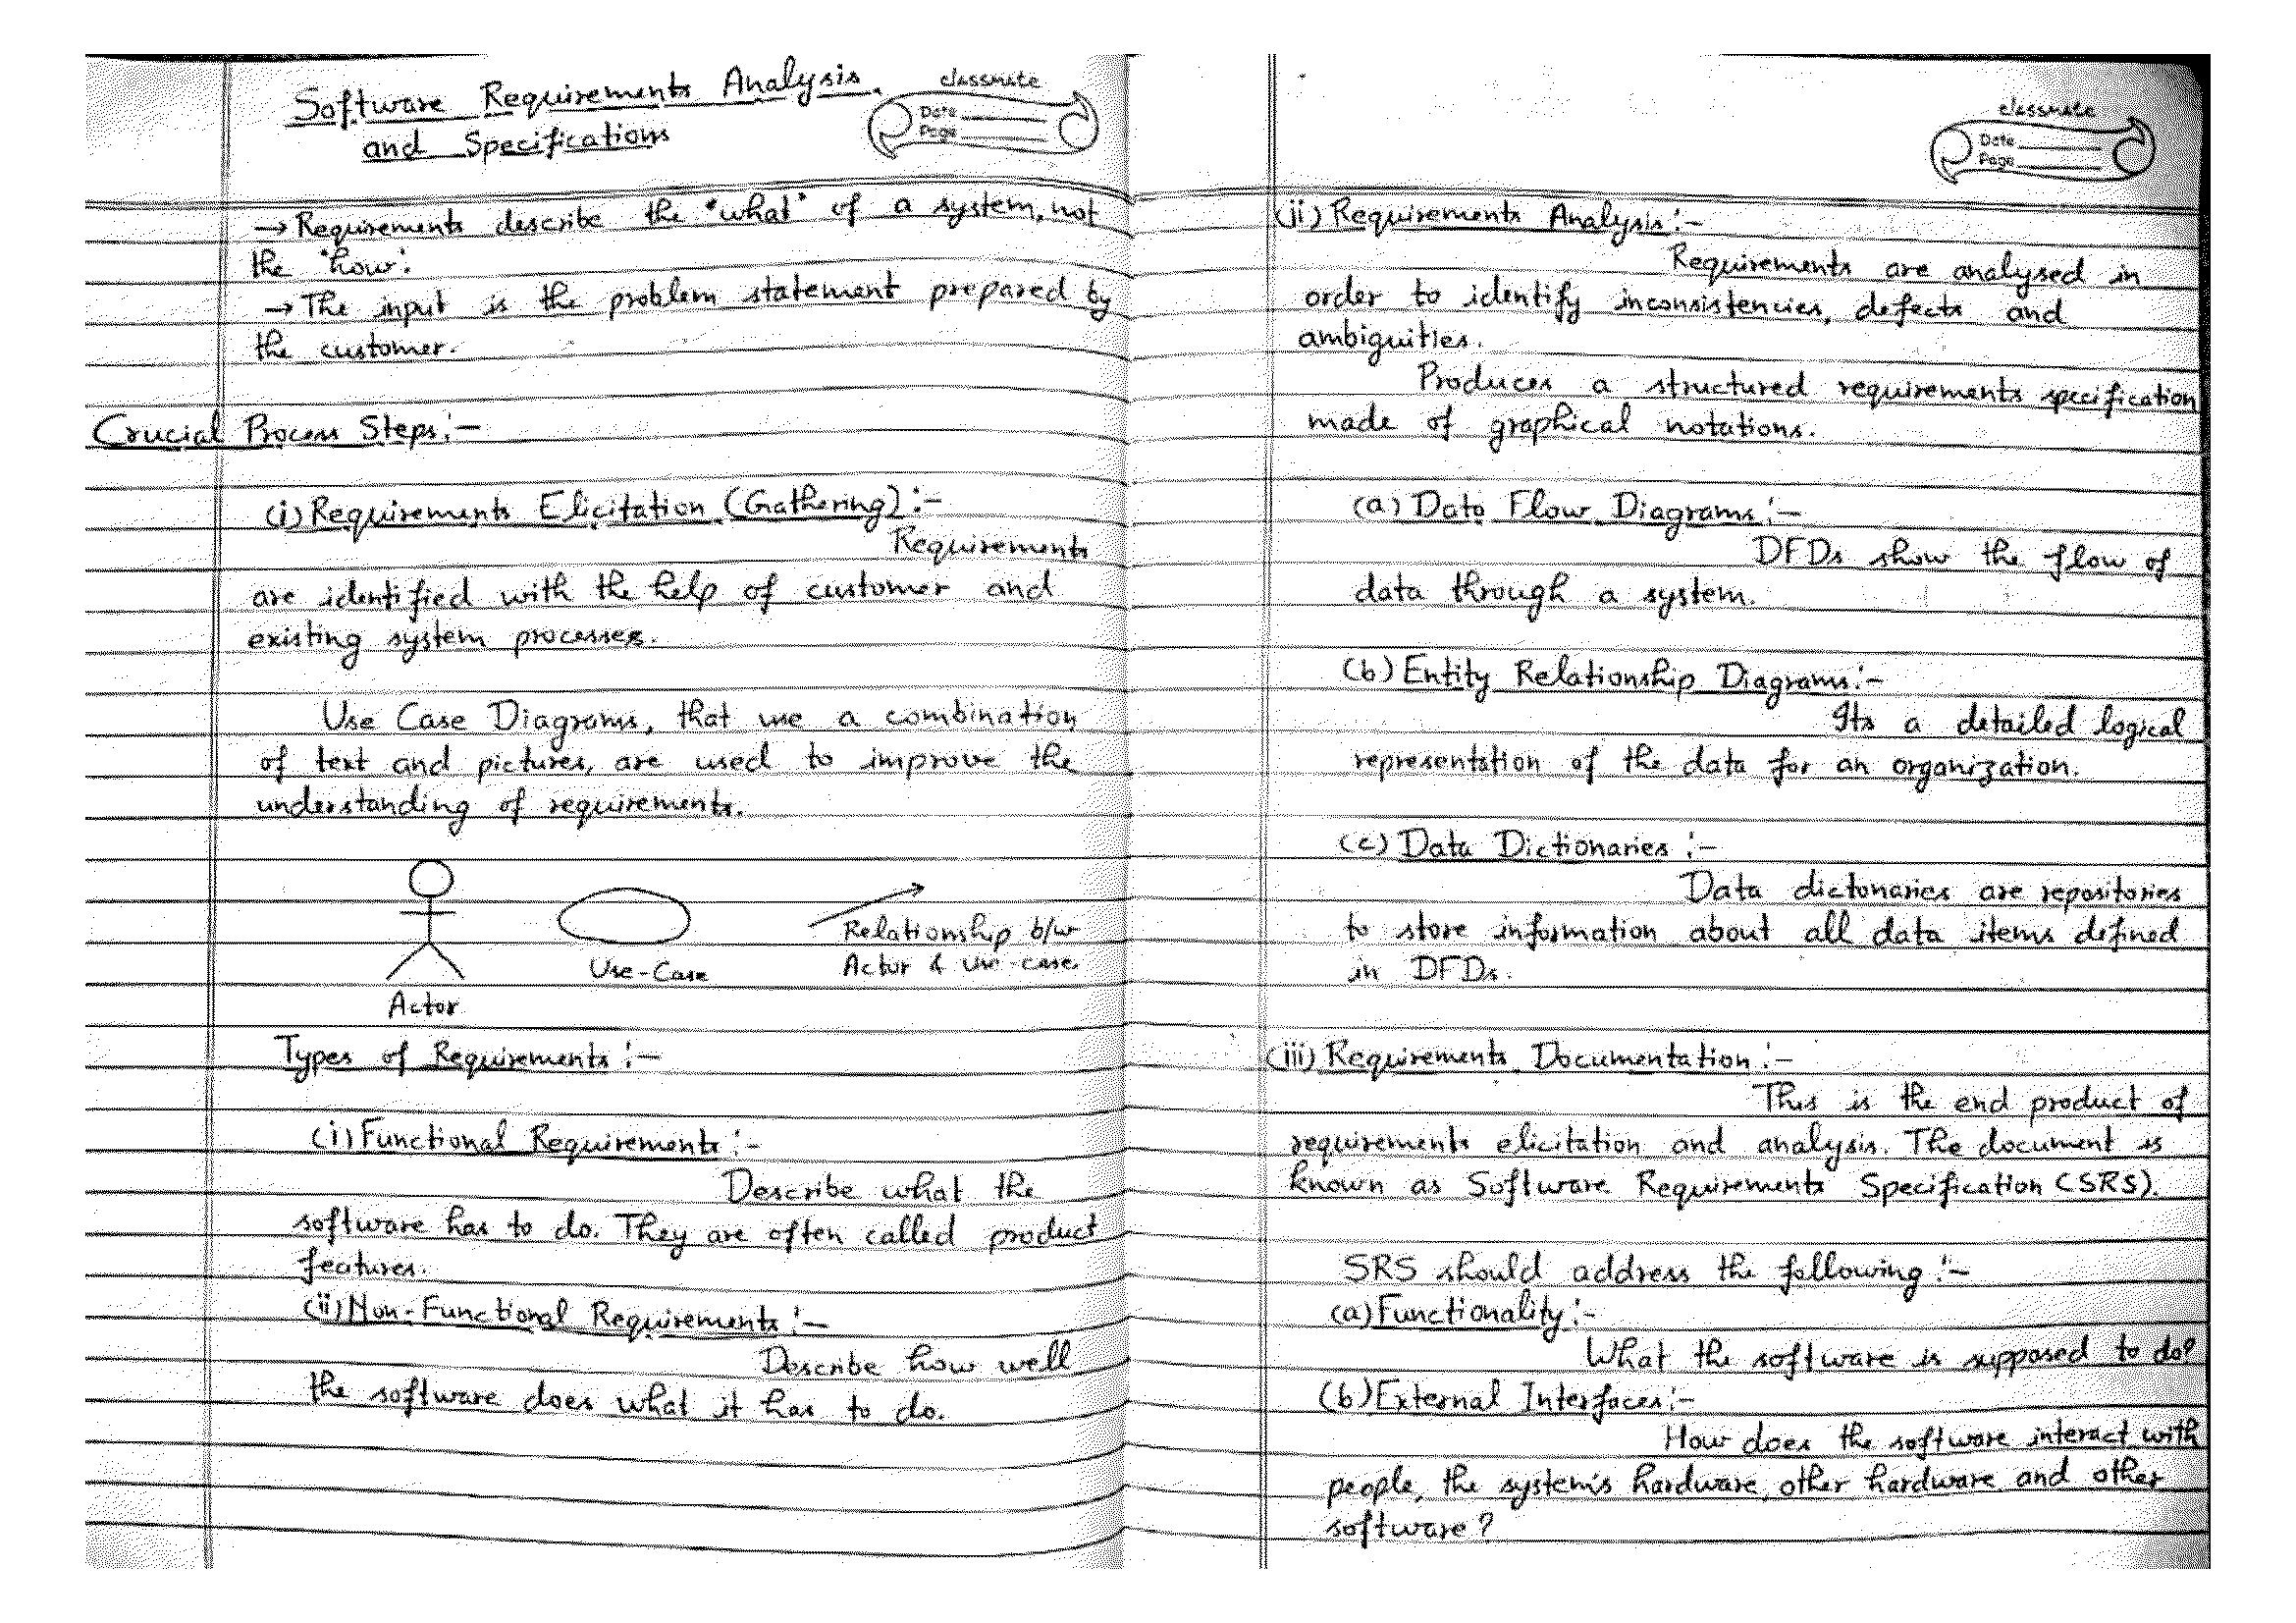 Software Requirements Analysis
and Specifications
classmate
Date
Page
→ Requirements describe the "what" of a system, not
the 'how'.
→ The input is the problem statement prepared by
the customer.
Crucial Process Steps:-
(i) Requirements Elicitation (Gathering):-
Requirements
are identified with the help of customer and
existing system processes.
Use Case Diagrams, that use a combination
of text and pictures, are used to improve the
understanding of requirements.
Actor
Use-Case
Relationship b/w
Actor & use-case.
Types of Requirements:-
(i) Functional Requirements:-
Describe what the
software has to do. They are often called product
features.
(ii) Non-Functional Requirements:-
Describe how well
the software does what it has to do.
classmate
Date
Page
(ii) Requirements Analysis:-
Requirements are analysed in
order to identify inconsistencies, defects and
ambiguities.
Produces a structured requirements specification
made of graphical notations.
(a) Data Flow Diagrams:-
DFDs show the flow of
data through a system.
(b) Entity Relationship Diagrams:-
Its a detailed logical
representation of the data for an organization.
(c) Data Dictionaries:-
Data dictonaries are repositories
to store information about all data items defined
in DFDs.
(iii) Requirements Documentation:-
This is the end product of
requirements elicitation and analysis. The document is
known as Software Requirements Specification (SRS).
SRS should address the following:-
(a) Functionality:-
What the software is supposed to do?
(b) External Interfaces:-
How does the software interact with
people, the system's hardware, other hardware and other
software?